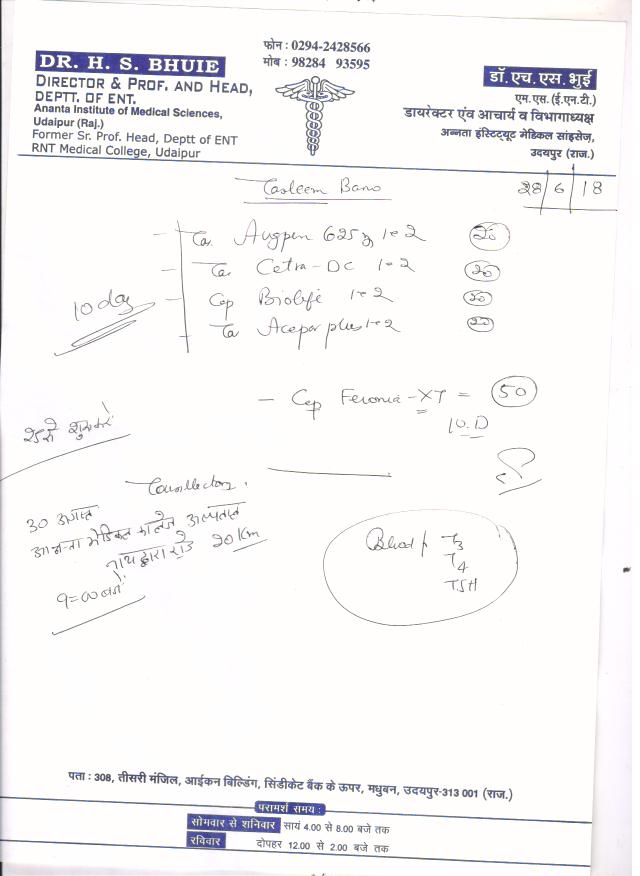 फोन : 0294-2428566
मोब : 98284 93595
DR. H. S. BHUIE
DIRECTOR & PROF. AND HEAD,
DEPTT. OF ENT.
Ananta Institute of Medical Sciences,
Udaipur (Raj.)
Former Sr. Prof. Head, Deptt of ENT
RNT Medical College, Udaipur
डॉ. एच. एस. भुई
एम. एस. (ई.एन.टी.)
डायरेक्टर एंव आचार्य व विभागाध्यक्ष
अन्नता इंस्टिट्यूट मेडिकल सांइसेज़,
उदयपुर (राज.)
Tasleem Bano
28/6/18
Ta. Augpen 625 1-2 20
Ta. Cetra-DC 1-2 20
Cap Biolife 1-2 20
Ta Acepar plus 1-2 20
10 day
Cap Feronia-XT = 50
10.D
Tonsillectomy.
30 अगस्त
अनन्ता मेडिकल कालेज अस्पताल
नाथद्वारा रोड 20 Km
9=00 बजे
Blood f T3
T4
TSH
पता : 308, तीसरी मंजिल, आईकन बिल्डिंग, सिंडीकेट बैंक के ऊपर, मधुबन, उदयपुर-313 001 (राज.)
परामर्श समय :
सोमवार से शनिवार सायं 4.00 से 8.00 बजे तक
रविवार दोपहर 12.00 से 2.00 बजे तक